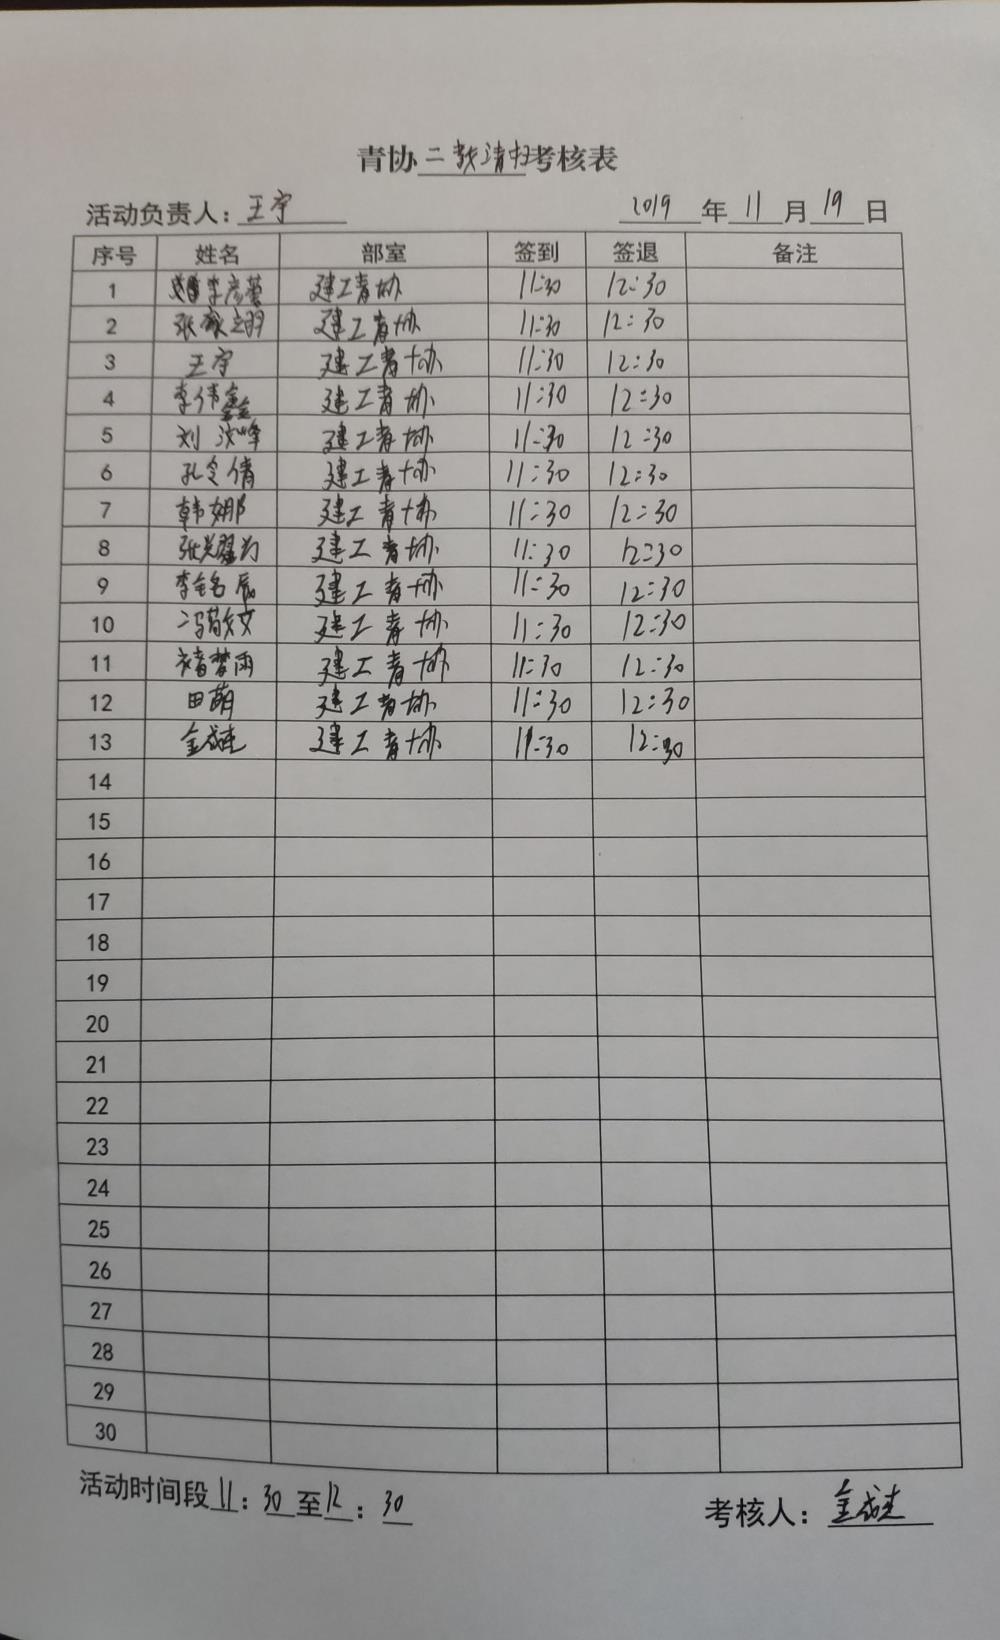 青协二教清扫考核表
活动负责人：王宇 2019年11月19日
序号 姓名 部室 签到 签退 备注
1 李彦蓉 建工青协 11:30 12:30
2 张 建工青协 11:30 12:30
3 王宇 建工青协 11:30 12:30
4 李伟鑫 建工青协 11:30 12:30
5 刘 峰 建工青协 11:30 12:30
6 孔令倩 建工青协 11:30 12:30
7 韩娜 建工青协 11:30 12:30
8 张 建工青协 11:30 12:30
9 李铭辰 建工青协 11:30 12:30
10 冯敬文 建工青协 11:30 12:30
11 褚梦雨 建工青协 11:30 12:30
12 田萌 建工青协 11:30 12:30
13 金成 建工青协 11:30 12:30
14
15
16
17
18
19
20
21
22
23
24
25
26
27
28
29
30
活动时间段11:30至12:30 考核人：金成